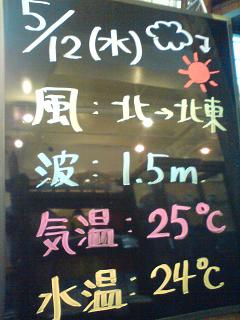 5/12(水)
風:北→北東
波:1.5m
気温:25℃
水温:24℃